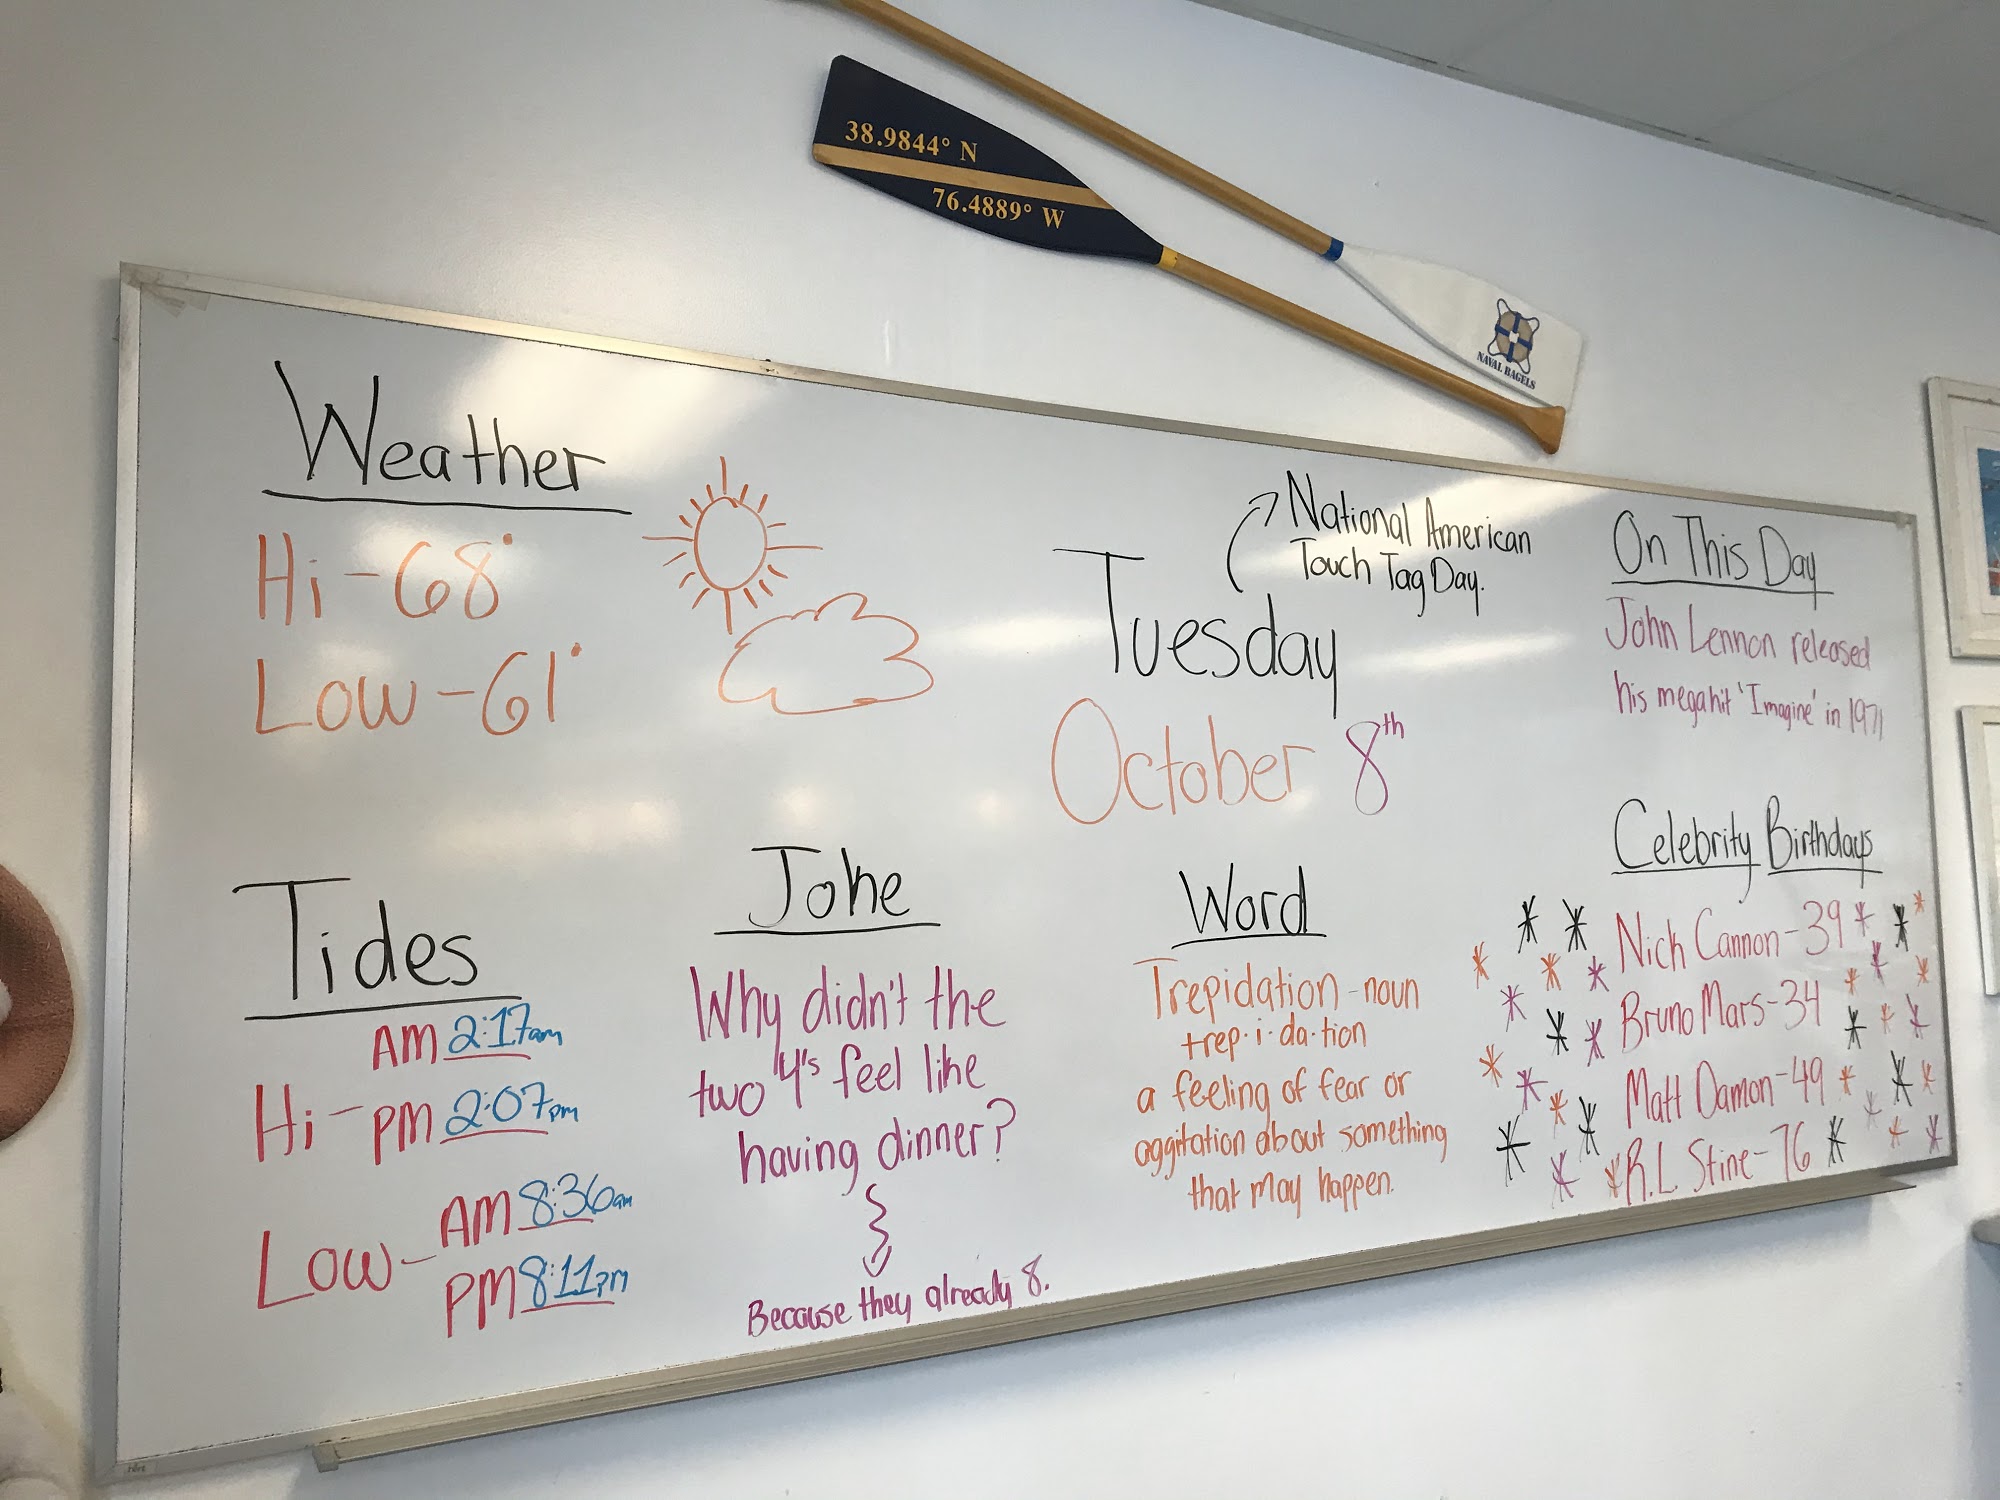 38.9844° N
76.4889° W
NAVAL BAGELS
Weather
Hi-68°
Low-61°
National American
Touch Tag Day.
Tuesday
October 8th
On This Day
John Lennon released
his megahit 'Imagine' in 1971
Tides
AM 2:17am
Hi-pm 2:07pm
Low-AM 8:36am
PM 8:11pm
Joke
Why didn't the
two 4's feel like
having dinner?
Because they already 8.
Word
Trepidation-noun
trep·i·da·tion
a feeling of fear or
aggitation about something
that may happen.
Celebrity Birthdays
Nick Cannon-39
Bruno Mars-34
Matt Damon-49
R.L. Stine-76